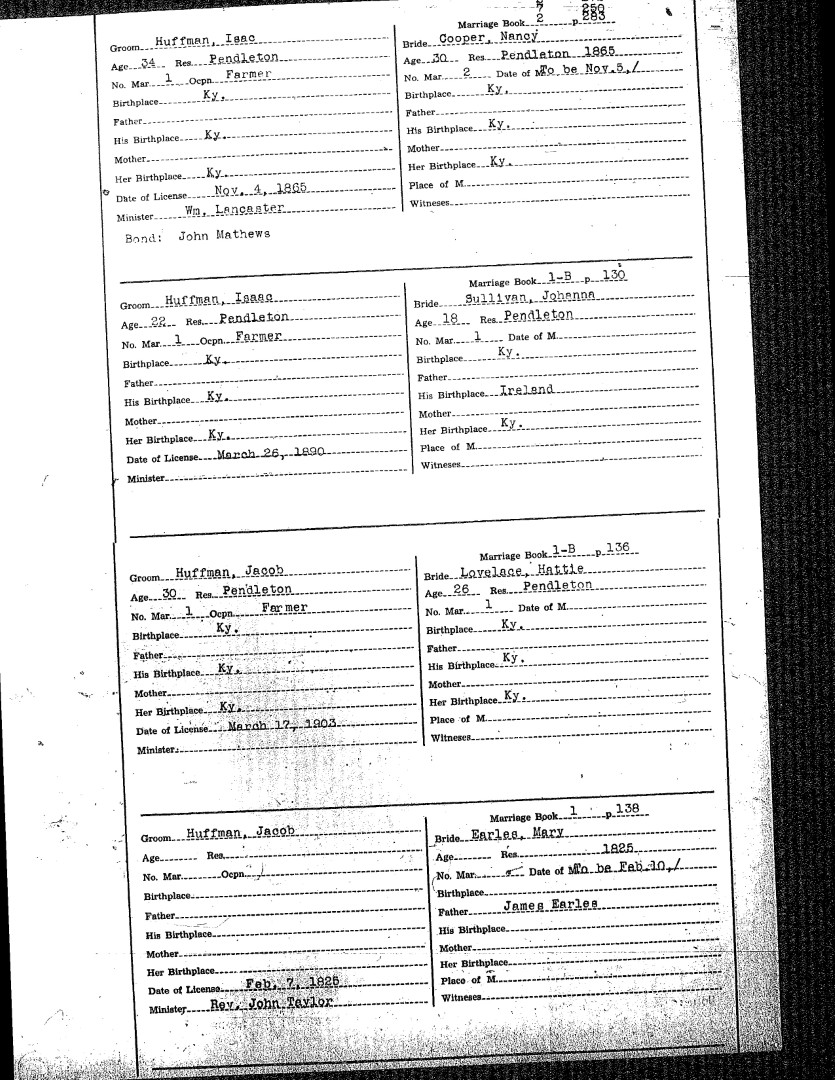 7 250
Marriage Book 2 p 283
Groom Huffman, Isac
Age 34 Res. Pendleton
No. Mar. 1 Ocpn. Farmer
Birthplace Ky.
Father
His Birthplace Ky.
Mother
Her Birthplace Ky.
Date of License Nov. 4, 1865
Minister Wm. Lancaster
Bond: John Mathews
Bride Cooper, Nancy
Age 30 Res. Pendleton 1865
No. Mar. 2 Date of M. To be Nov.5,/
Birthplace Ky.
Father
His Birthplace Ky.
Mother
Her Birthplace Ky.
Place of M.
Witneses
Marriage Book 1-B p 130
Groom Huffman, Isaac
Age 22 Res. Pendleton
No. Mar. 1 Ocpn. Farmer
Birthplace Ky.
Father
His Birthplace Ky.
Mother
Her Birthplace Ky.
Date of License March 26, 1890
Minister
Bride Sullivan, Johanna
Age 18 Res. Pendleton
No. Mar. 1 Date of M.
Birthplace Ky.
Father
His Birthplace Ireland
Mother
Her Birthplace Ky.
Place of M.
Witneses
Marriage Book 1-B p 136
Groom Huffman, Jacob
Age 30 Res. Pendleton
No. Mar. 1 Ocpn. Farmer
Birthplace Ky.
Father
His Birthplace Ky.
Mother
Her Birthplace Ky.
Date of License March 17, 1903
Minister
Bride Lovelace, Hattie
Age 26 Res. Pendleton
No. Mar. 1 Date of M.
Birthplace Ky.
Father
His Birthplace Ky.
Mother
Her Birthplace Ky.
Place of M.
Witneses
Marriage Book 1 p 138
Groom Huffman, Jacob
Age Res.
No. Mar. Ocpn.
Birthplace
Father
His Birthplace
Mother
Her Birthplace
Date of License Feb. 7, 1825
Minister Rev. John Taylor
Bride Earles, Mary
Age Res. 1825
No. Mar. Date of M. To be Feb.10,/
Birthplace
Father James Earles
His Birthplace
Mother
Her Birthplace
Place of M.
Witneses